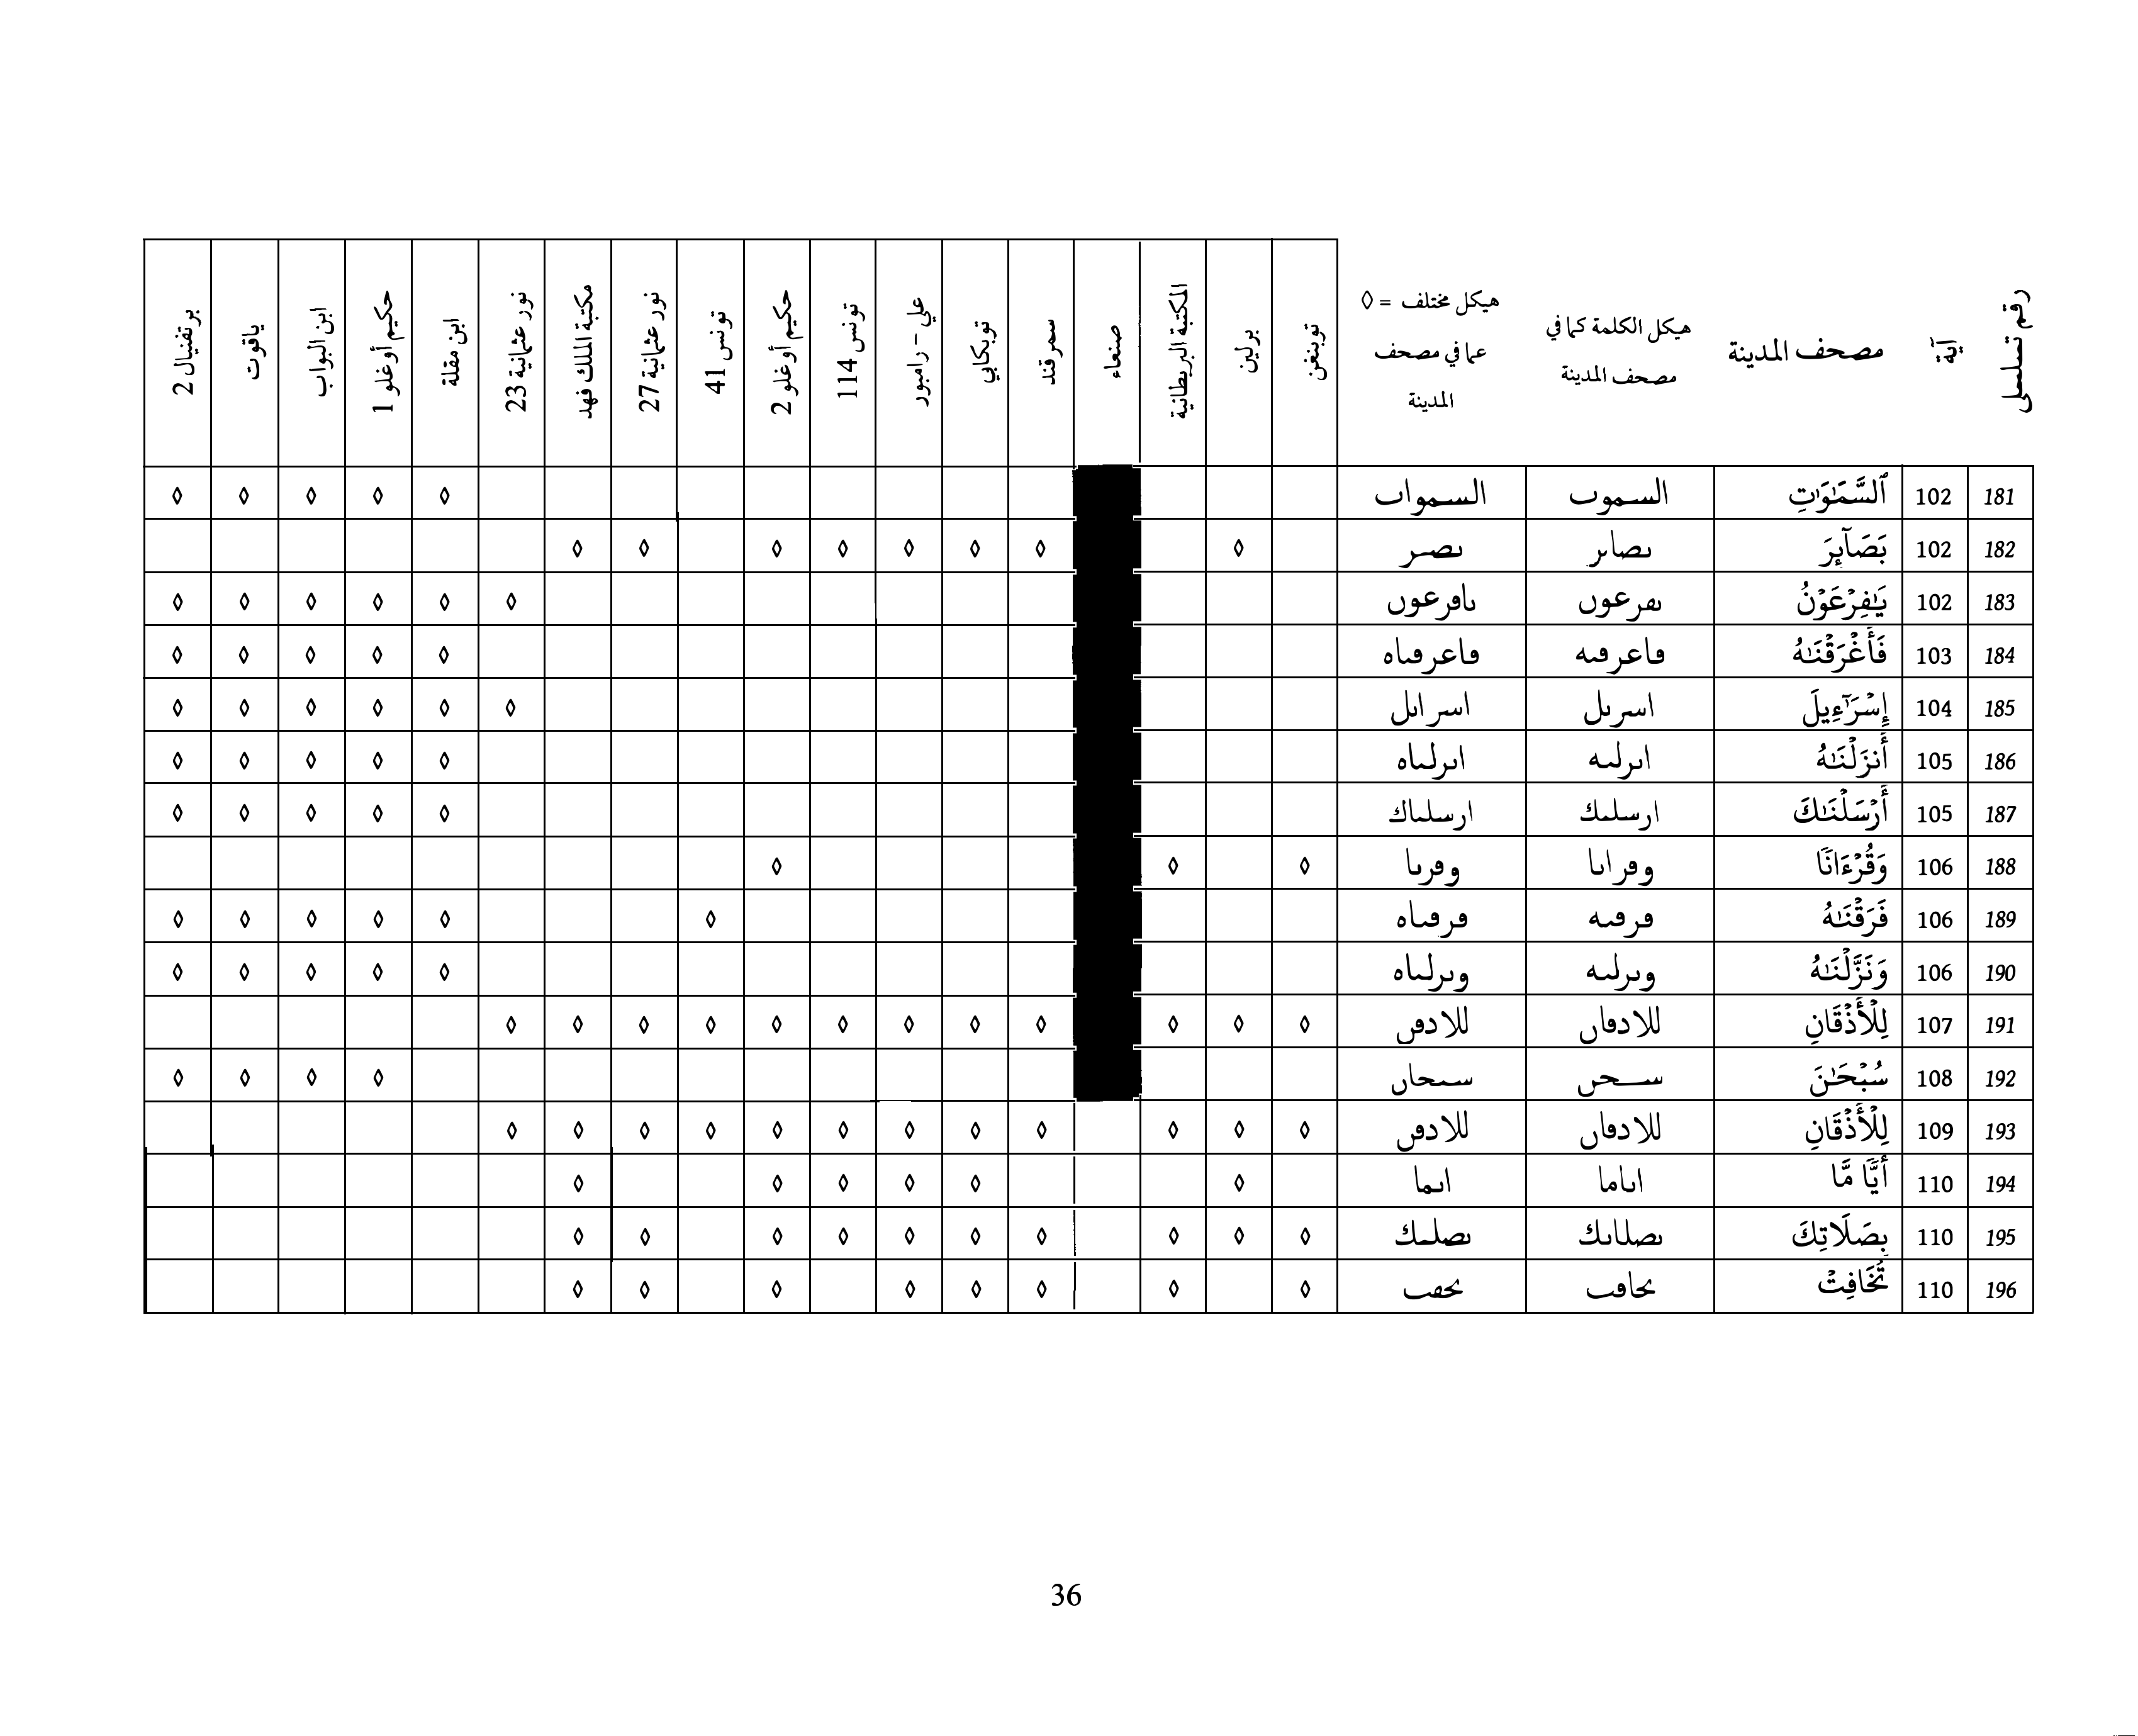 رقم تسلسلي | آية | مصحف المدينة | هيكل الكلمة كما في مصحف المدينة | هيكل مختلف = ◊ عما في مصحف المدينة | توبنغن | برلين | المكتبة البريطانية | صنعاء | سمرقند | توبكابي | علي – رامبور | تونس 114 | حكيم أوغلو 2 | تونس 41 | نور عثمانية 27 | مكتبة الملك فهد | نور عثمانية 23 | ابن مقلة | حكيم أوغلو 1 | ابن البواب | ياقوت | برتفنيال 2
181 102 ٱلسَّمَٰوَٰتِ السموٮ السمواٮ ◊ ◊ ◊ ◊ ◊
182 102 بَصَآئِرَ ٮصاٮر ٮصٮر ◊ ◊ ◊ ◊ ◊ ◊ ◊ ◊
183 102 يَٰفِرْعَوْنُ ٮڡرعوں ٮاڡرعوں ◊ ◊ ◊ ◊ ◊ ◊
184 103 فَأَغْرَقْنَٰهُ ڡاعرڡٮه ڡاعرڡٮاه ◊ ◊ ◊ ◊ ◊
185 104 إِسْرَٰٓءِيلَ اسرٮل اسراٮل ◊ ◊ ◊ ◊ ◊ ◊
186 105 أَنزَلْنَٰهُ اٮرلٮه اٮرلٮاه ◊ ◊ ◊ ◊ ◊
187 105 أَرْسَلْنَٰكَ ارسلٮك ارسلٮاك ◊ ◊ ◊ ◊ ◊
188 106 وَقُرْءَانًا وڡراٮا وڡرٮا ◊ ◊ ◊
189 106 فَرَقْنَٰهُ ڡرڡٮه ڡرڡٮاه ◊ ◊ ◊ ◊ ◊ ◊
190 106 وَنَزَّلْنَٰهُ وٮرلٮه وٮرلٮاه ◊ ◊ ◊ ◊ ◊
191 107 لِلْأَذْقَانِ للادڡاں للادڡں ◊ ◊ ◊ ◊ ◊ ◊ ◊ ◊ ◊ ◊ ◊ ◊
192 108 سُبْحَٰنَ سٮحں سٮحاں ◊ ◊ ◊ ◊
193 109 لِلْأَذْقَانِ للادڡاں للادڡں ◊ ◊ ◊ ◊ ◊ ◊ ◊ ◊ ◊ ◊ ◊ ◊
194 110 أَيًّا مَّا اٮاما اٮما ◊ ◊ ◊ ◊ ◊ ◊
195 110 بِصَلَاتِكَ ٮصلاٮك ٮصلٮك ◊ ◊ ◊ ◊ ◊ ◊ ◊ ◊ ◊ ◊
196 110 تُخَافِتْ ٮحاڡٮ ٮحڡٮ ◊ ◊ ◊ ◊ ◊ ◊ ◊ ◊
36